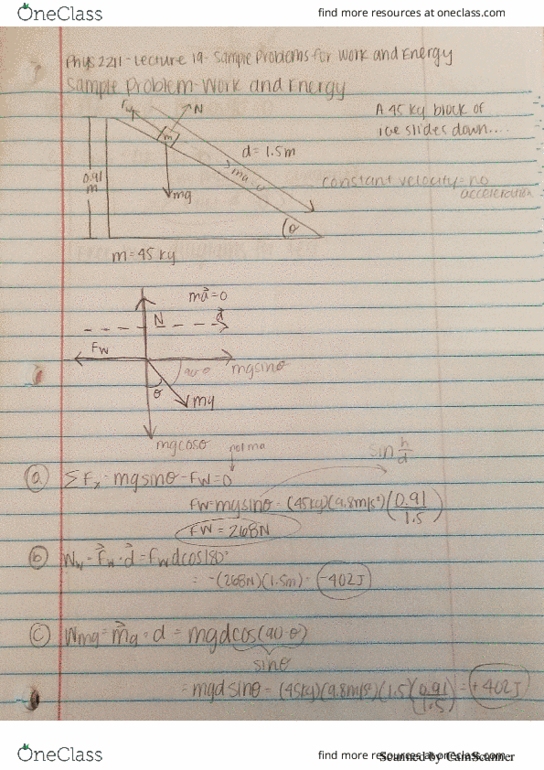 OneClass
find more resources at oneclass.com
Phys 2211 - Lecture 19 - Sample Problems for Work and Energy
Sample Problem - Work and Energy
Fw
N
A 45 kg block of
ice slides down...
m
d = 1.5m
0.91
m
ma=0
constant velocity = no
acceleration
mg
θ
m = 45 kg
ma⃗=0
N
d⃗
Fw
90-θ
mgsinθ
θ
mg
mgcosθ
not ma
sin h/d
(a) ΣFx = mgsinθ - Fw = 0
Fw = mgsinθ = (45kg)(9.8m/s²)(0.91/1.5)
Fw = 268N
(b) Ww = F⃗w · d⃗ = Fwdcos180°
= -(268N)(1.5m) = -402J
(c) Wmg = m⃗g · d = mgdcos(90-θ)
sinθ
= mgdsinθ = (45kg)(9.8m/s²)(1.5)(0.91/1.5) = +402J
OneClass
find more resources at oneclass.com
Scanned by CamScanner